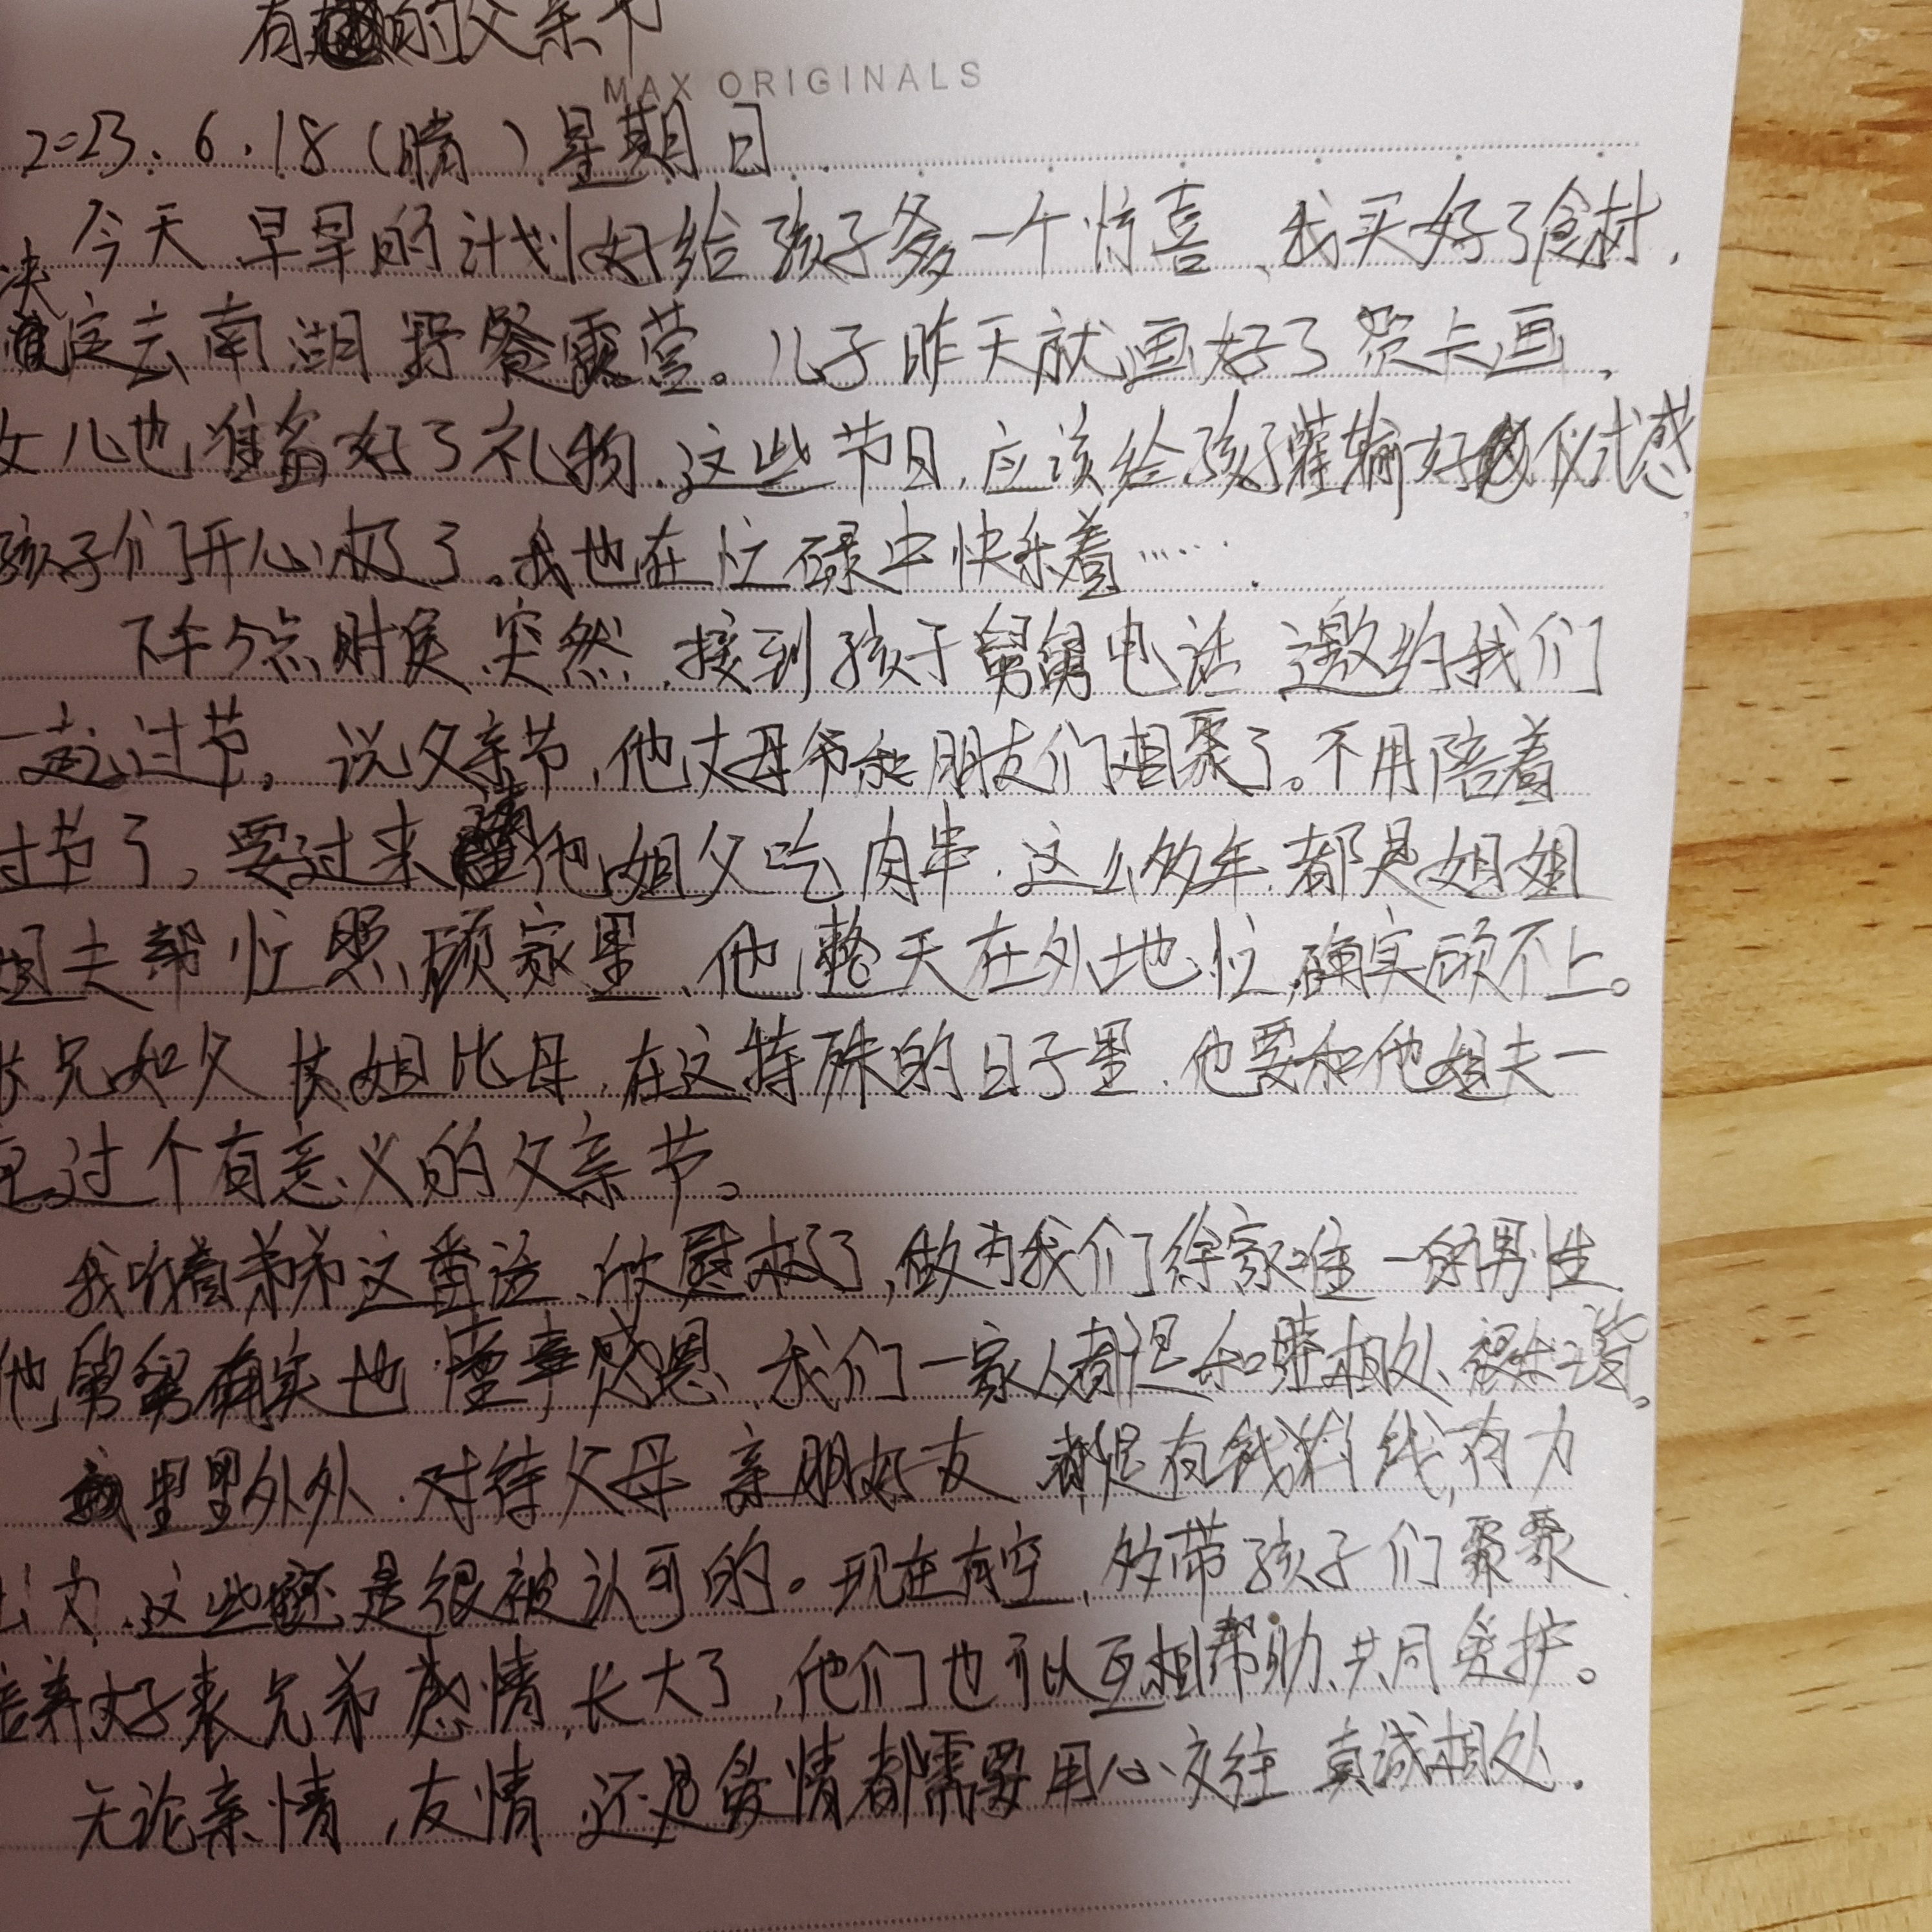 有的父亲节
MAX ORIGINALS
2023.6.18(晴)星期日
今天早早的计划好给孩子爹一个惊喜、我买好了食材,
决定去南湖野餐露营。儿子昨天就画好了贺卡画,
女儿也准备好了礼物.这些节日,应该给孩子灌输好的仪式感
孩子们开心极了。我也在忙碌中快乐着……
下午5点时候、突然,接到孩子舅舅电话、邀约我们
一起过节。说父亲节,他丈母爷和朋友们相聚了。不用陪着
过节了,要过来请他姐父吃肉串.这么多年.都是姐姐
姐夫帮忙照顾家里、他整天在外地忙,确实顾不上。
长兄如父 长姐比母.在这特殊的日子里.他要和他姐夫一
起过个有意义的父亲节。
我听着弟弟这番话、欣慰极了,做为我们徐家唯一的男性
他舅舅确实也懂事感恩、我们一家人都很和睦相处、很和谐。
里里外外.对待父母 亲朋好友 都是有钱料钱,有力
出力.这些还是很被认可的。现在有空,多带孩子们聚聚
培养好表兄弟感情,长大了,他们也可以互相帮助、共同爱护。
无论亲情,友情 还是爱情都需要用心交往 真诚相处.